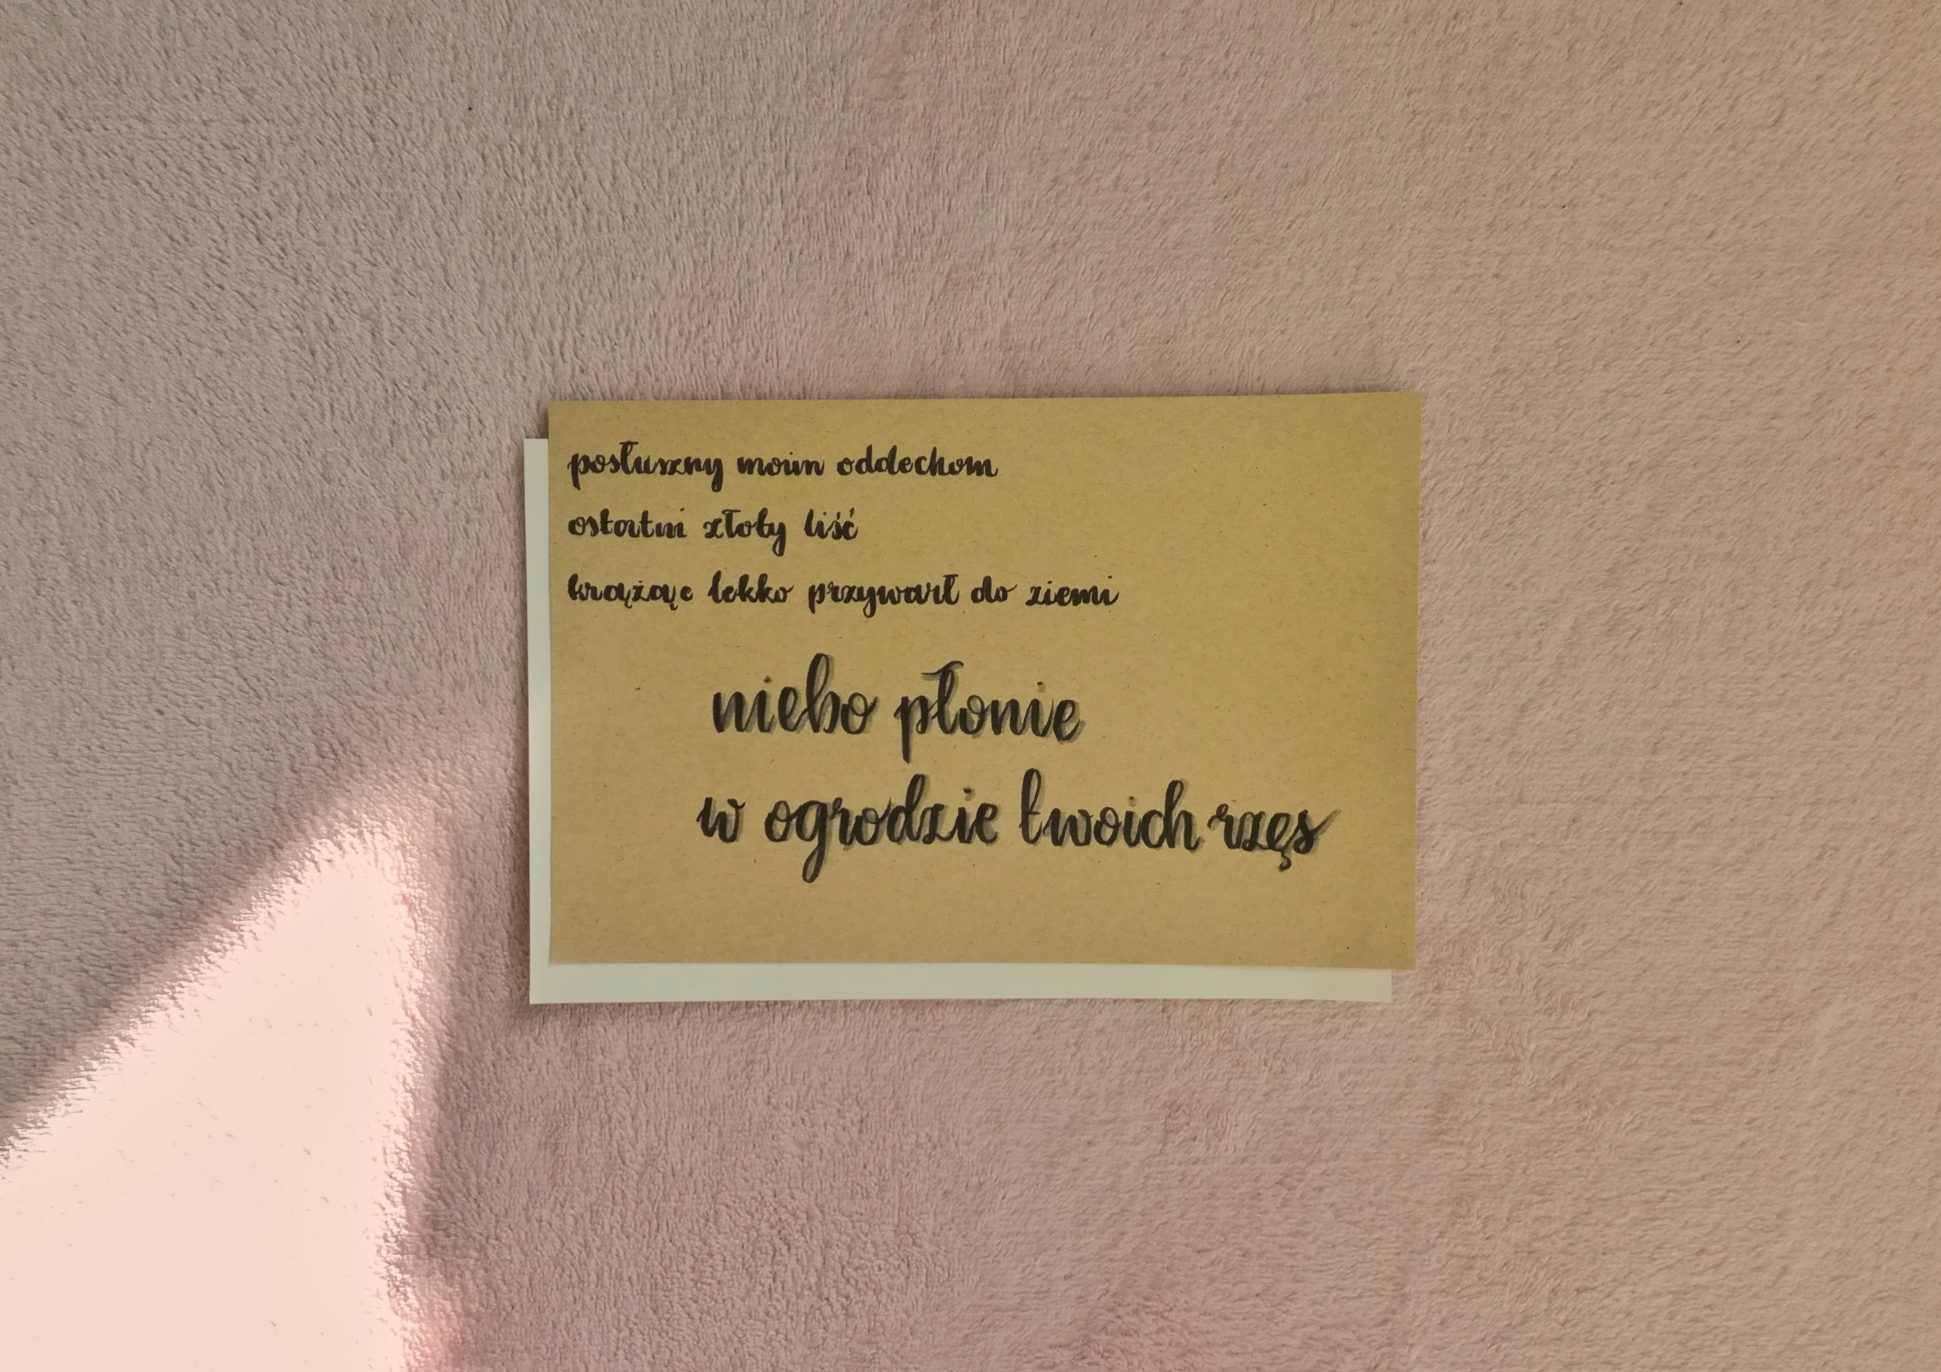 posłuszny moim oddechom
ostatni złoty liść
krążąc lekko przywarł do ziemi
niebo płonie
w ogrodzie twoich rzęs